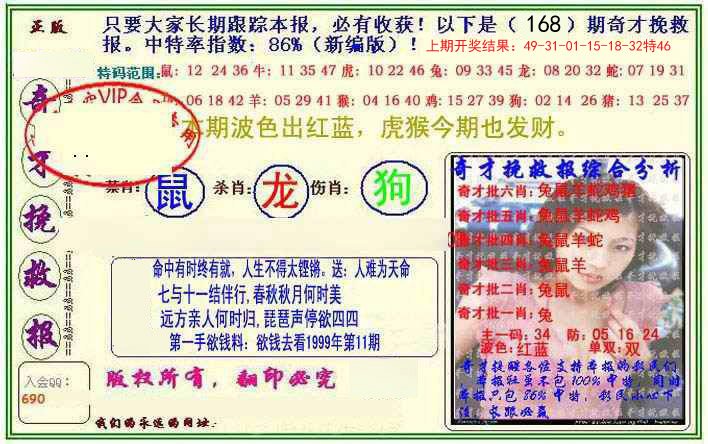 正版
只要大家长期跟踪本报，必有收获！以下是（168）期奇才挽救
报。中特率指数：86%（新编版）！上期开奖结果：49-31-01-15-18-32特46
特码范围:鼠: 12 24 36 牛: 11 35 47 虎: 10 22 46 兔: 09 33 45 龙: 08 20 32 蛇: 07 19 31
06 18 42 羊: 05 29 41 猴: 04 16 40 鸡: 15 27 39 狗: 02 14 26 猪: 13 25 37
VIP会
本期波色出红蓝，虎猴今期也发财。
奇才挽救报
禁肖:鼠 杀肖:龙 伤肖:狗
命中有时终有就，人生不得太铿锵。送：人难为天命
七与十一结伴行,春秋秋月何时美
远方亲人何时归,琵琶声停欲四四
第一手欲钱料：欲钱去看1999年第11期
入会QQ：
690
版权所有，翻印必究
我们的永远的网址:
奇才挽救报综合分析
奇才批六肖:兔鼠羊蛇鸡猪
奇才批五肖:兔鼠羊蛇鸡
奇才批四肖:兔鼠羊蛇
奇才批三肖:兔鼠羊
奇才批二肖:兔鼠
奇才批一肖:兔
主一码: 34 防: 05 16 24
波色:红蓝 单双:双
奇才提醒各位支持本报的彩民们
本报社虽不包100%中特，同时
本报只包86%中特，彩民小心下
注，长跟必赢